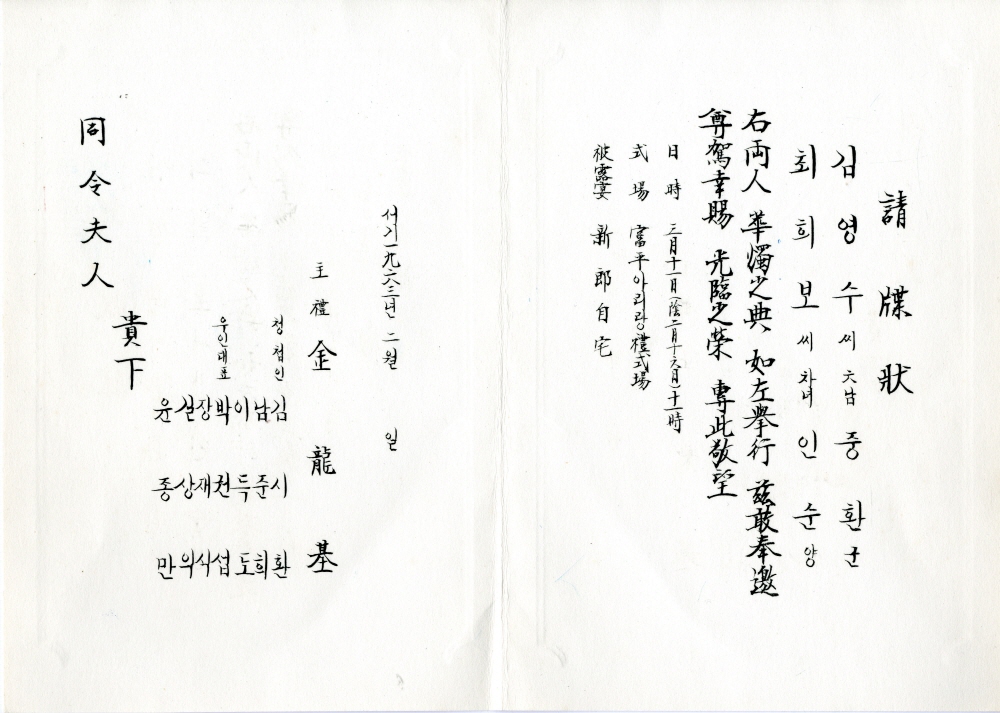 請牒狀
김영수씨 六남 중환 군
최희보씨 차녀 인순 양
右両人 華燭之典 如左擧行 玆敢奉邀
尊駕幸賜 光臨之榮 專此敬望
日時 三月十一日(陰二月十六日)十一時
式場 富平아리랑禮式場
披露宴 新郎自宅
서기一九六三년 二월 일
主禮 金龍基
청첩인 김시환
남준희
이득도
우인대표 박권섭
장재식
신상의
윤종만
貴下
同令夫人